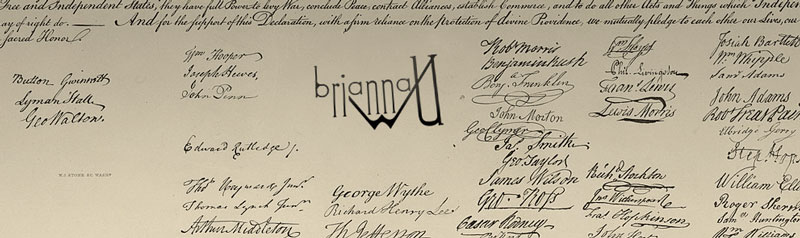 Free and Independent States, they have full Power to levy War, conclude Peace, contract Alliances, establish Commerce, and to do all other Acts and Things which Indepen
ay of right do. And for the support of this Declaration, with a firm reliance on the Protection of divine Providence, we mutually pledge to each other our Lives, our
sacred Honor
Button Gwinnett
Lyman Hall
Geo Walton.
Wm Hooper
Joseph Hewes,
John Penn
Edward Rutledge /.
Thos Heyward Junr.
Thomas Lynch Junr.
Arthur Middleton
briannaWU
George Wythe
Richard Henry Lee
Th Jefferson
Robt Morris
Benjamin Rush
Benj. Franklin
John Morton
Geo Clymer
Jas. Smith
Geo. Taylor
James Wilson
Geo. Ross
Caesar Rodney
Phil. Livingston
Frans. Lewis
Lewis Morris
Richd Stockton
Jno Witherspoon
Fras. Hopkinson
John
Josiah Bartlett
Wm. Whipple
Saml Adams
John Adams
Robt Treat Paine
Elbridge Gerry
Step. Hop
William Elle
Roger Sherm
Saml Huntington
Wm. Williams